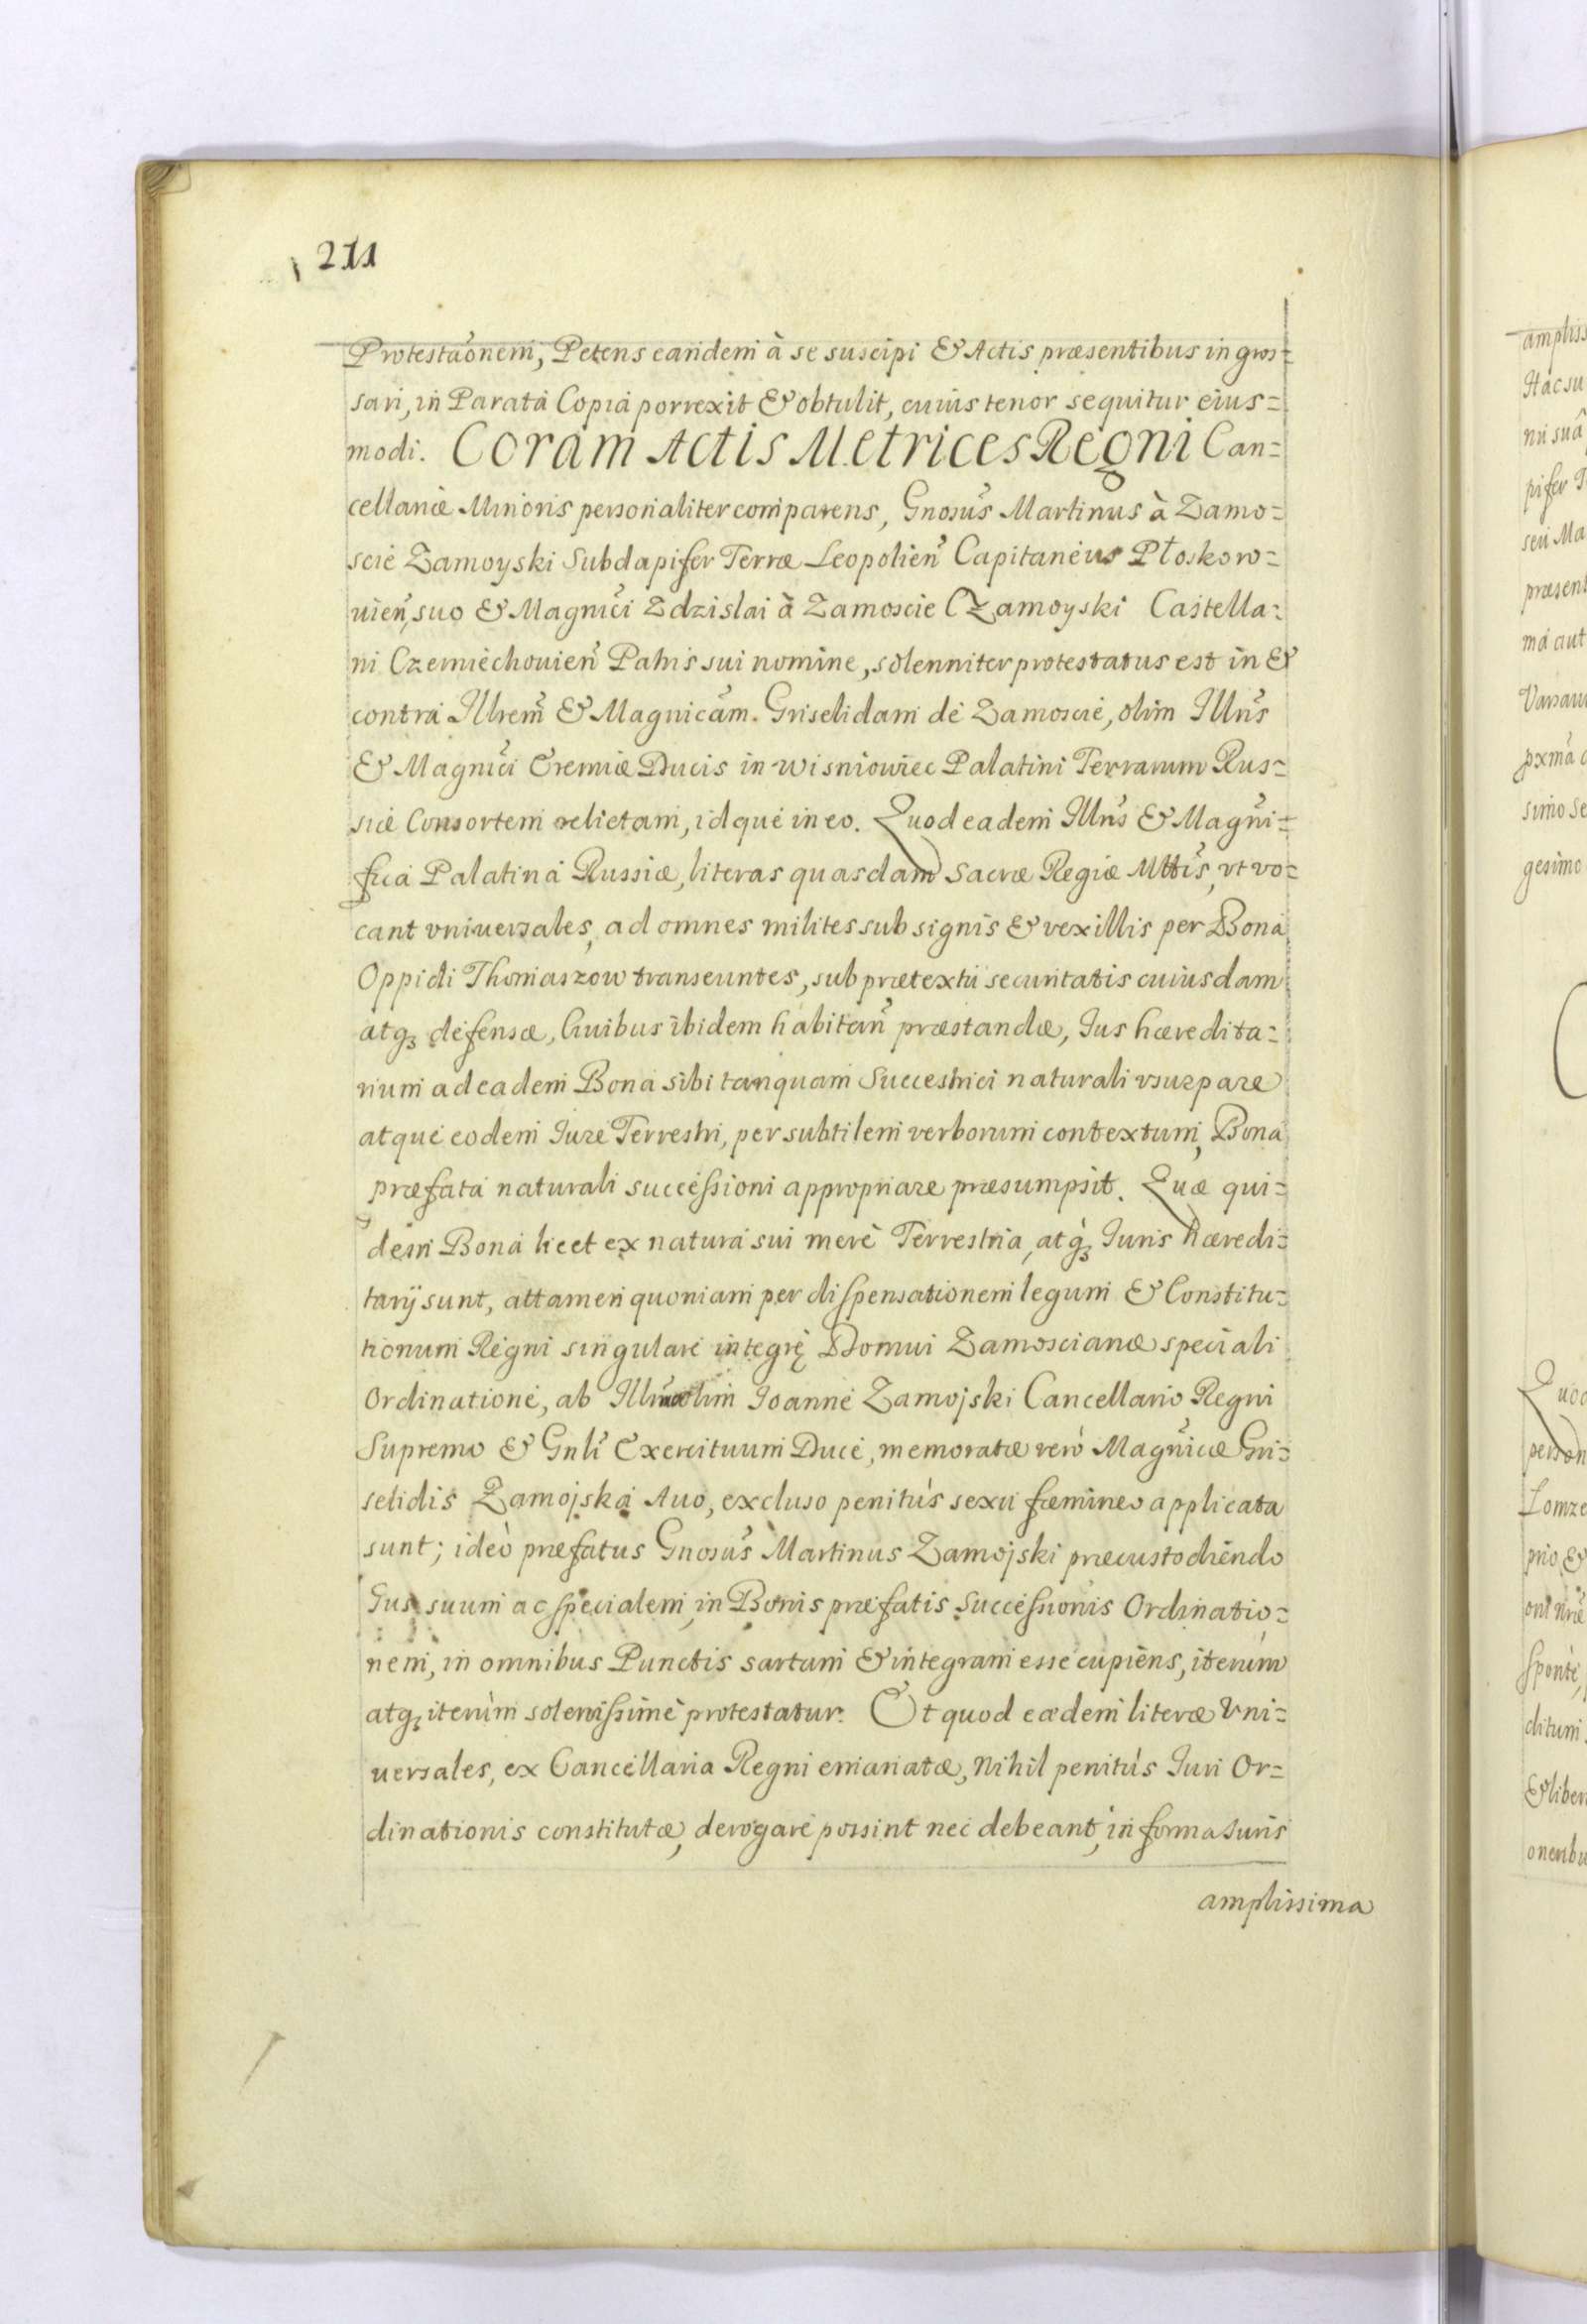 211
Protestaõnem, Petens eandem à se suscipi & Actis præsentibus in gros=
sari, in Parata Copia porrexit & obtulit, cuius tenor sequitur eius=
modi. Coram Actis Metrices Regni Can=
cellariæ Minoris personaliter comparens, Gnosus Martinus à Zamo=
scie Zamoyski Subdapifer Terræ Leopolien Capitaneus Płoskoro=
uien, suo & Magnici Zdzislai à Zamoscie Zamoyski Castella=
ni Czerniechouien Patris sui nomine, solenniter protestatus est in &
contra Illrem & Magnicam. Griselidam de Zamoscie, olim Illris
& Magnici Eremiæ Ducis in Wisniowiec Palatini Terrarum Rus=
siæ Consortem relictam, idque in eo. Quod eadem Illris & Magni=
fica Palatina Russiæ, literas quasdam Sacræ Regiæ Mttis, vt vo=
cant vniuersales, ad omnes milites sub signis & vexillis per Bona
Oppidi Thomaszow transeuntes, sub prætextu securitatis cuiusdam
atq; defensæ, Ciuibus ibidem habitan præstandæ, Ius hæredita=
rium ad eadem Bona sibi tanquam Successtrici naturali vsurpare
atque eodem Iure Terrestri, per subtilem verborum contextum, Bona
præfata naturali successioni appropriare præsumpsit. Quæ qui=
dem Bona licet ex natura sui merè Terrestria, atq; Iuris hæredi=
tarij sunt, attamen quoniam per dispensationem legum & Constitu=
tionum Regni singulari integrę Domui Zamoscianæ speciali
Ordinatione, ab Illri olim Ioanne Zamojski Cancellario Regni
Supremo & Gnli Exercituum Duce, memoratæ verò Magnicæ Gri=
selidis Zamojska Auo, excluso penitùs sexu fæmineo applicata
sunt; ideò præfatus Gnosus Martinus Zamojski præcustodiendo
Ius suum ac specialem, in Bonis præfatis Successionis Ordinatio=
nem, in omnibus Punctis sartam & integram esse cupiens, iterùm
atq; iterùm solenissimè protestatur. Et quod eædem literæ Vni=
uersales, ex Cancellaria Regni emanatæ, nihil penitùs Iuri Or=
dinationis constitutæ, derogare possint nec debeant, in forma Iuris
amplissima